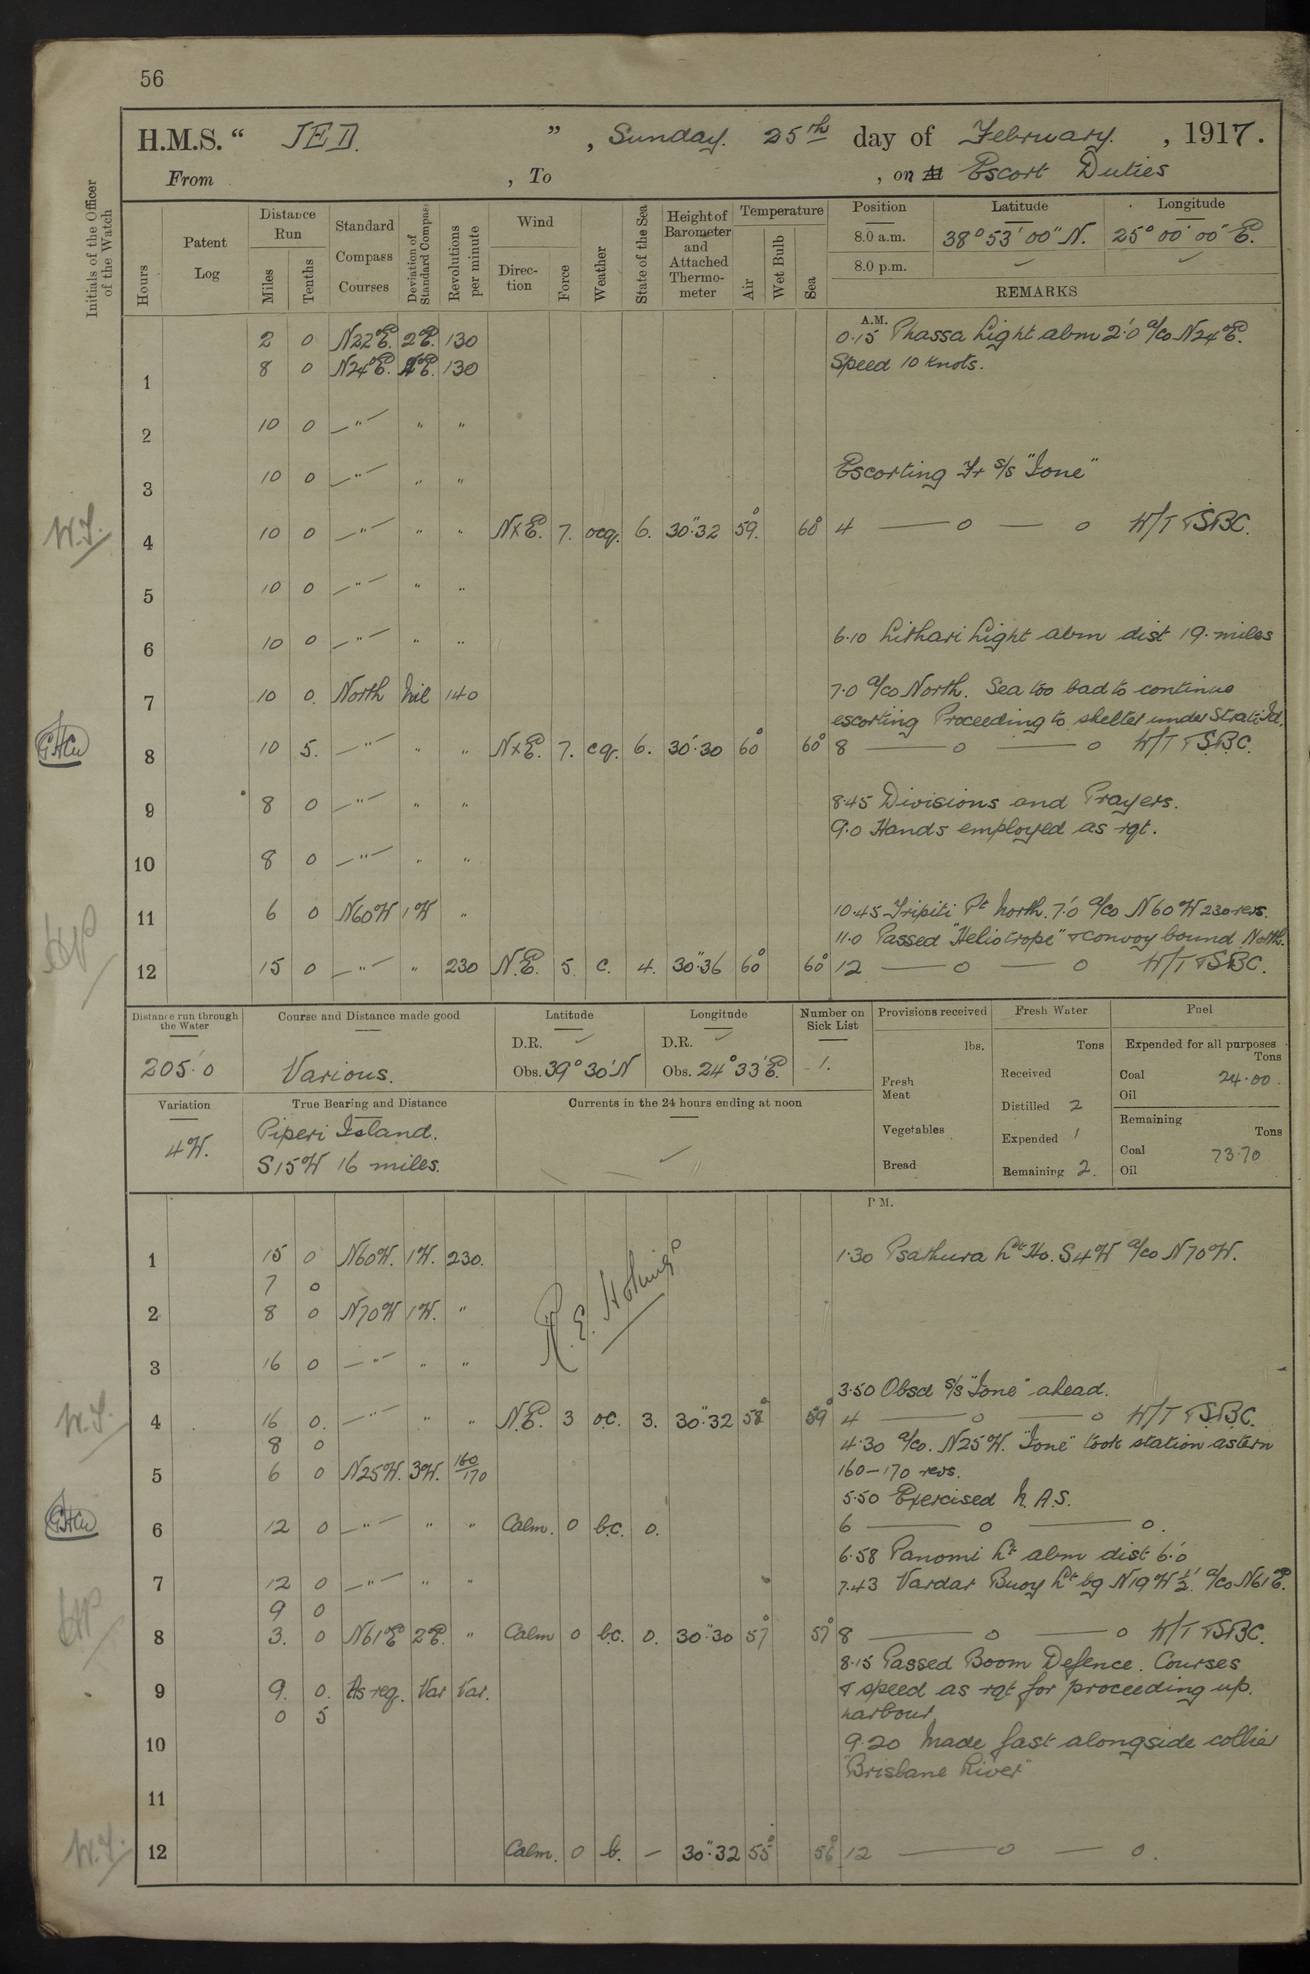 56
H.M.S. “ JED. ” , Sunday. 25th day of February. , 1917.
From , To , on Escort Duties
Initials of the Officer of the Watch
Hours
Patent Log
Distance Run
Miles
Tenths
Standard Compass Courses
Deviation of Standard Compass
Revolutions per minute
Wind
Direction
Force
Weather
State of the Sea
Height of Barometer and Attached Thermometer
Temperature
Air
Wet Bulb
Sea
Position Latitude Longitude
8.0 a.m. 38° 53' 00" N. 25° 00' 00" E.
8.0 p.m. ✓ ✓
REMARKS
A.M.
2 0 N22°E. 2°E. 130 0.15 Phassa Light abm 2'.0 a/co N24°E.
1 8 0 N24°E. E. 130 Speed 10 knots.
2 10 0 —"— " "
3 10 0 —"— " " Escorting Fr s/s "Ione"
W.J. 4 10 0 —"— " " NxE. 7. ocq. 6. 30".32 59° 60° 4 —— o —— o W/T TSBC.
5 10 0 —"— " "
6 10 0 —"— " " 6.10 Lithari Light abm dist 19. miles
7 10 0. North Nil 140 7.0 a/co North. Sea too bad to continue
escorting Proceeding to shelter under Strati Id.
8 10 5. —"— " " NxE. 7. cq. 6. 30".30 60° 60° 8 —— o —— o W/T TSBC.
9 8 0 —"— " " 8.45 Divisions and Prayers.
9.0 Hands employed as rqt.
10 8 0 —"— " "
11 6 0 N60W 1W " 10.45 Tripiti Pt North. 7'.0 a/co N60W 230 revs.
11.0 Passed "Heliotrope" & convoy bound North.
12 15 0 —"— " 230 N.E. 5. c. 4. 30".36 60° 60° 12 —— o —— o W/T TSBC.
Distance run through the Water
205'.0
Course and Distance made good
Various.
Latitude
D.R. ✓
Obs. 39° 30' N
Longitude
D.R. ✓
Obs. 24° 33' E.
Number on Sick List
1.
Provisions received
lbs.
Fresh Meat
Vegetables
Bread
Fresh Water
Tons
Received
Distilled 2
Expended 1
Remaining 2.
Fuel
Expended for all purposes
Tons
Coal 24.00.
Oil
Remaining
Tons
Coal 73.70
Oil
Variation
4W.
True Bearing and Distance
Piperi Island.
S15W 16 miles.
Currents in the 24 hours ending at noon
✓
P.M.
1 15 0 N60W. 1W. 230. 1.30 Psathura Lt Ho. S4W a/co N70W.
7 0
2 8 0 N70W 1W. "
3 16 0 —"— " "
3.50 Obsd s/s "Ione" ahead.
W.J. 4 16 0. —"— " " N.E. 3 oc. 3. 30".32 58° 59° 4 —— o —— o W/T TSBC.
8 0 4.30 a/co. N25W. "Ione" took station astern
5 6 0 N25W. 3W. 160/170 160–170 revs.
5.50 Exercised N.A.S.
6 12 0 —"— " " Calm. 0 b.c. 0. 6 —— o —— o.
6.58 Panomi Lt abm dist 6'.0
7 12 0 —"— " " 7.43 Vardar Buoy Lt bg N19W ½' a/co N61E.
9 0
8 3. 0 N61E 2E. " Calm 0 b.c. 0. 30".30 57° 57° 8 —— o —— o W/T TSBC.
8.15 Passed Boom Defence. Courses
9 9. 0. As req. Var Var. & speed as rqt for proceeding up
0 5 harbour
10 9.20 Made fast alongside collier
"Brisbane River"
11
W.J. 12 Calm. 0 b. — 30".32 55° 56° 12 —— o —— o.